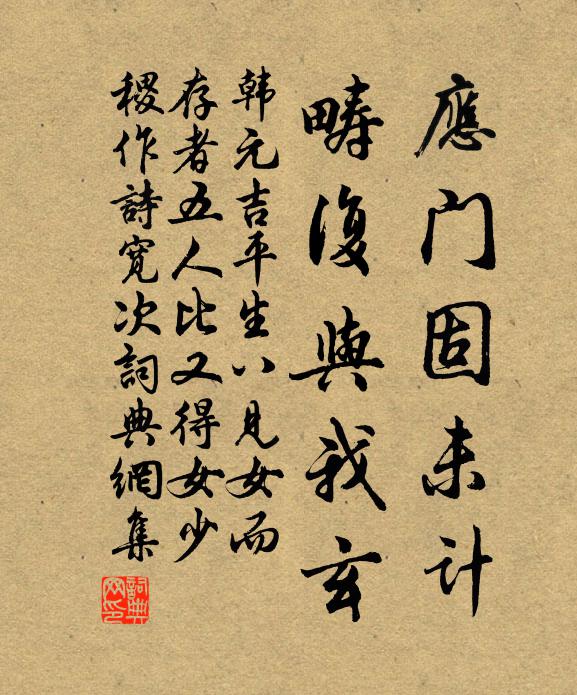 應門固未計
疇復與我玄
韩元吉平生八見女而
存者五人比又得女少
稷作詩寛次詞典網集
詞典网印